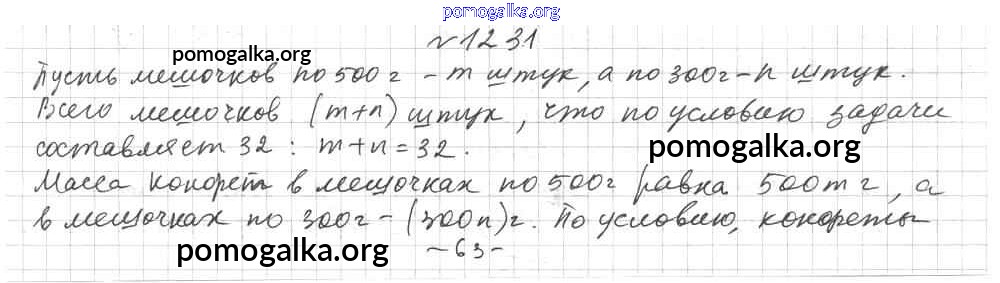 pomogalka.org
№1231
pomogalka.org
Пусть мешочков по 500 г – m штук, а по 300 г – n штук.
Всего мешочков (m+n) штук, что по условию задачи
составляет 32 : m+n=32.
pomogalka.org
Масса конфет в мешочках по 500 г равна 500m г, а
в мешочках по 300 г – (300n) г. По условию, конфеты
pomogalka.org
– 63 –